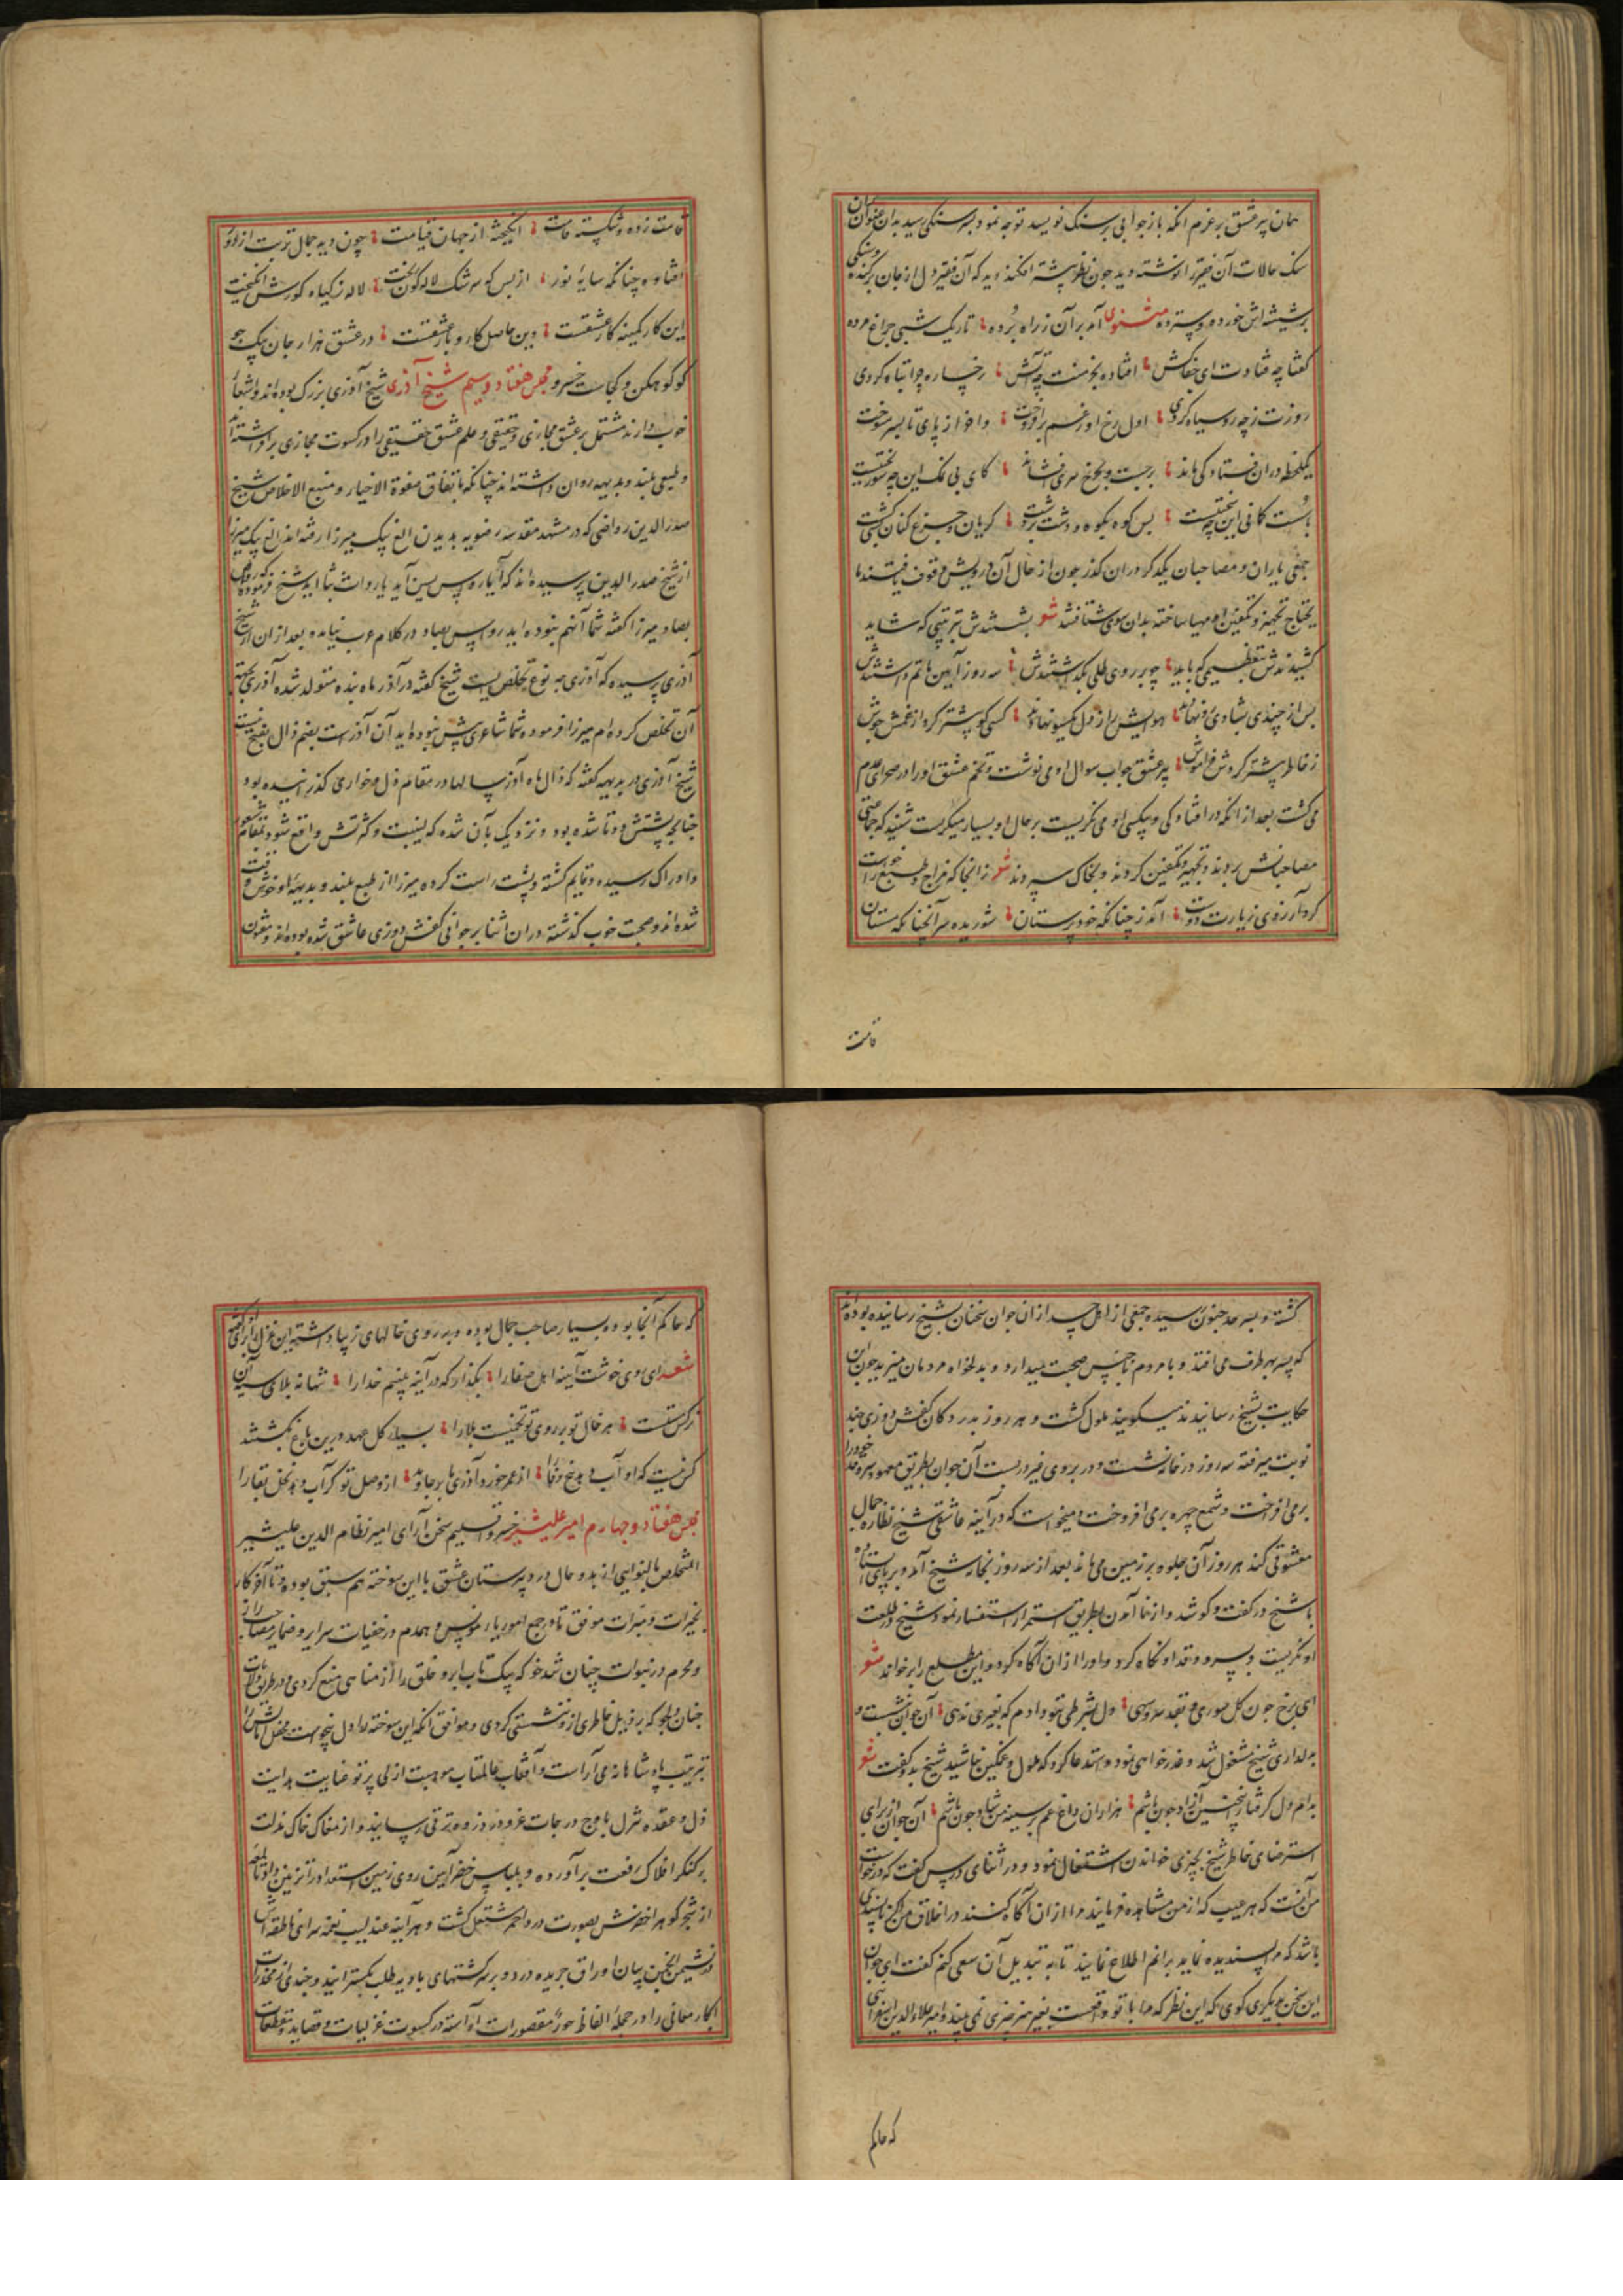 همان پیر عشق بر عزم آنکه باز جوابی بر سنک نویسد توجه نمود بسر سنکی رسید بدان عنوان
سنک حالات آن فقیر را نوشته دید چون نظر پیشتر افکند دید که آن فقیر دل از جان برکنده و سنکی
بر شیشه اش خورده و پرده مثنوی آمد بر آن ز راه برده تاریک شبی چراغ مرده
کفتا چه فتادت ای جفاکش افتاده بخرمنت چه آتش رخساره چرا تباه کردی
روزت ز چه رو سیاه کردی اول رخ او ز غم برافروخت واخر از پای تا بسر سوخت
یکلحظه دران فتادکی ماند برجست و بچرخ سر می فشاند کای بی نمک این چه شوربختیست
با سست کمانی این چه سختیست بس کوه بکوه و دشت بر دشت کریان و جزع کنان همی کشت
جمعی یاران و مصاحبان یکدکر دران کذر چون از حال آن درویش وقوف یافتند ما
یحتاج تجهیز و تکفین او مهیا ساخته بدان سوی شتافتند شعر بشستندش بترتیبی که شاید
کشیدندش بتعظیمی که باید چو بر روی طلی بکداشتندش سه روز آیین ماتم داشتندش
پس از چندی بشادی رو نهادند هوایش را ز دل یکسو نهادند کسی کو پیشتر کرد از غمش جوش
ز خاطر پیشتر کردش فراموش پیر عشق جواب سوال او می نوشت و تخم عشق او را در صحرای عدم
می کشت بعد از آنکه در افتادکی و بیکسی او می نکریست بر حال او بسیار میکریست شنید که جماعتی
مصاحبانش بردند و تجهیز و تکفین کردند و بخاک سپردند شعر زانجا که مزاج و طبع خواست
کرد آرزوی زیارت دوست آمد ز چنانکه خود پرستان شوریده سر آنچنانکه مستان
قامت
قامت زده و شکسته قامت انکیخته از جهان قیامت چون دید جمال تربت از دور
افتاد چنانکه سایه نور از بس که سرشک لاله کون ریخت لاله ز کیاه کورش انکیخت
این کار کمینه کار عشقست وین حاصل کار و بار عشقست در عشق هزار جان بیک جو
کو کوهکن و کجاست خسرو مجلس هفتاد و سیم شیخ آذری شیخ آذری بزرک بوده اند و اشعار
خوب دارند مشتمل بر عشق مجازی و حقیقی و علم عشق حقیقی را در کسوت مجازی برافراشته اند
و طبعی بلند و بدیهه روان داشته اند چنانکه باتفاق صفوة الاخیار و منبع الاخلاص شیخ
صدرالدین رواضی که در مشهد مقدسه رضویه بدیدن الغ بیک میرزا رفته اند الغ بیک میرزا
از شیخ صدرالدین پرسیده اند که آیا رواس بسین آید یا رواث بثا اید شیخ فرموده که رواص
بصاد میرزا کفته شما آنهم نبوده اید رواس بصاد در کلام عرب نیامده بعد ازان از شیخ
آذری پرسیده که آذری چه نوع تخلص است شیخ کفته در آذر ماه بنده متولد شده آذری بجهة
آن تخلص کرده ام میرزا فرموده شما شاعری پیش نبوده اید آن آذرست بضم ذال بفتح نیست
شیخ آذری در بدیهه کفته که ذال ماه آذر سالها در مقام ذل و خواری کذرانیده بود
چنانچه پشتش دوتا شده بود و نزدیک بآن شده که بنسبت و کثرتش واقع شود بمقام شعور
و ادراک رسیده و قایم کشته و پشت راست کرده میرزا از طبع بلند و بدیهه او خوش وقت
شده اند و صحبت خوب کذشته دران اثنا بر جوانی کفش دوزی عاشق شده بوده اند و مقیدان
کشته و بسرحد جنون رسیده جمعی از اهل حسد ازان جوان سخنان بشیخ رسانیده بوده اند
که پسر بهر طرف می افتد و با مردم ناجنس صحبت میدارد و بدلخواه مردمان میزید چون این
حکایت بشیخ رسانیدند میکویند ملول کشت و هر روز بدر دکان کفش دوزی چند
نوبت میرفته سه روز در خانه نشست و در بروی غیر در بست آن جوان بطریق معهود هر روز خود را
بر می افروخت و شمع چهره بر می افروخت و میخواست که در آینه عاشقی شیخ نظاره جمال
معشوقی کند هر روز آن جلوه بر زمین می ماند بعد از سه روز بخانه شیخ آمد و بر پای استاده
با شیخ در کفت و کو شد و از نا آمدن بطریق استمرار استفسار نمود شیخ در طلعت
او نکریست و بسرو قد او نکاه کرد و او را از ان آکاه کرد و این مطلع را بر خواند شعر
ای برخ چون کل سوری و بقد سرو سهی دل بشرطی بتو دادم که بغیری ندهی آن جوان بنشست و
بدلداری شیخ مشغول شد و عذرخواهی نمود و استدعا کرد که ملول و غمکین نباشید شیخ بدو کفت شعر
بدام دل کرفتارم چنین آزاد چون باشم هزاران داغ غم بر سینه من شاد چون باشم آن جوان از برای
استرضای خاطر شیخ بچیزی خواندن اشتغال نمود و در اثنای درس کفت که درخواست
من آنست که هر عیب که از من مشاهده فرمایند مرا ازان آکاه کنند در اخلاق من اکر ناپسندی
باشد که مرا پسندیده نماید برانم اطلاع نمایند تا به تبدیل آن سعی کنم کفت ای جوان
این سخن بدیکری کوی که این نظر که مرا با تو واقعست بغیر هنر چیزی نمی بیند و امیر علاءالدین اسفراینی
که حاکم
که حاکم آنجا بود و بسیار صاحب جمال بوده و بر روی خالهای زیبا داشته این غزل برای او کفته
شعر ای روی خوشت آینه اهل صفا را بکذار که در آینه بینیم خدا را تنها نه بلای سیه آن
نرکس تست هر خال تو بر روی تو تخمیست بلا را بسیار کل عهد درین باغ بکشتند
کس نیست که او آب دهد بیخ وفا را از عمر خورد آذری ما بر جاوید از وصل تو کر آب دهد نخل بقا را
مجلس هفتاد و چهارم امیر علیشیر خسرو اقلیم سخن آرای امیر نظام الدین علیشیر
المتخلص بالنوایی از بدو حال در دبیرستان عشق با این سوخته هم سبق بوده و تا آخر کار
بخیرات و مبرات موفق تا در جمع امور یار مونس و همدم در خفیات سرایر و ضمایر صاحب راز
و محرم در نبوات چنان شد خو که بیک تاب ابرو خلق را از مناهی منع کردی و در طریق مواسات
چنان دلجو که بر ذیل خاطری از و نشستی کردی و موافق آنکه این سوخته را دل میخواست محفل نشاط را
بترتیب پادشاهانه می آراست و آفتاب عالمتاب موهبت ازلی پرتو عنایت بدایت
ذل و عقده تنزل باوج درجات عز و ذروه ترقی رسانید و از مغاک خاک مذلت
بر کنکر افلاک رفعت برآورده و بلباس خضر آیین روی زمین استعداد را تزیین داد تا نغمه
از شجر کوهر اخضرش بصورت درد احمر مشتعل کشت و هر آینه عندلیب نغمه سرای ناطقه اش
در نشیمن انجمن بیان اوراق جریده درد و بر سرکشتهای بادیه طلب بکسترانید و چندی از مخدرات
ابکار معانی را در حجله الفاظ حور مقصورات آراسته در کسوت غزلیات و قصاید و مقطعات